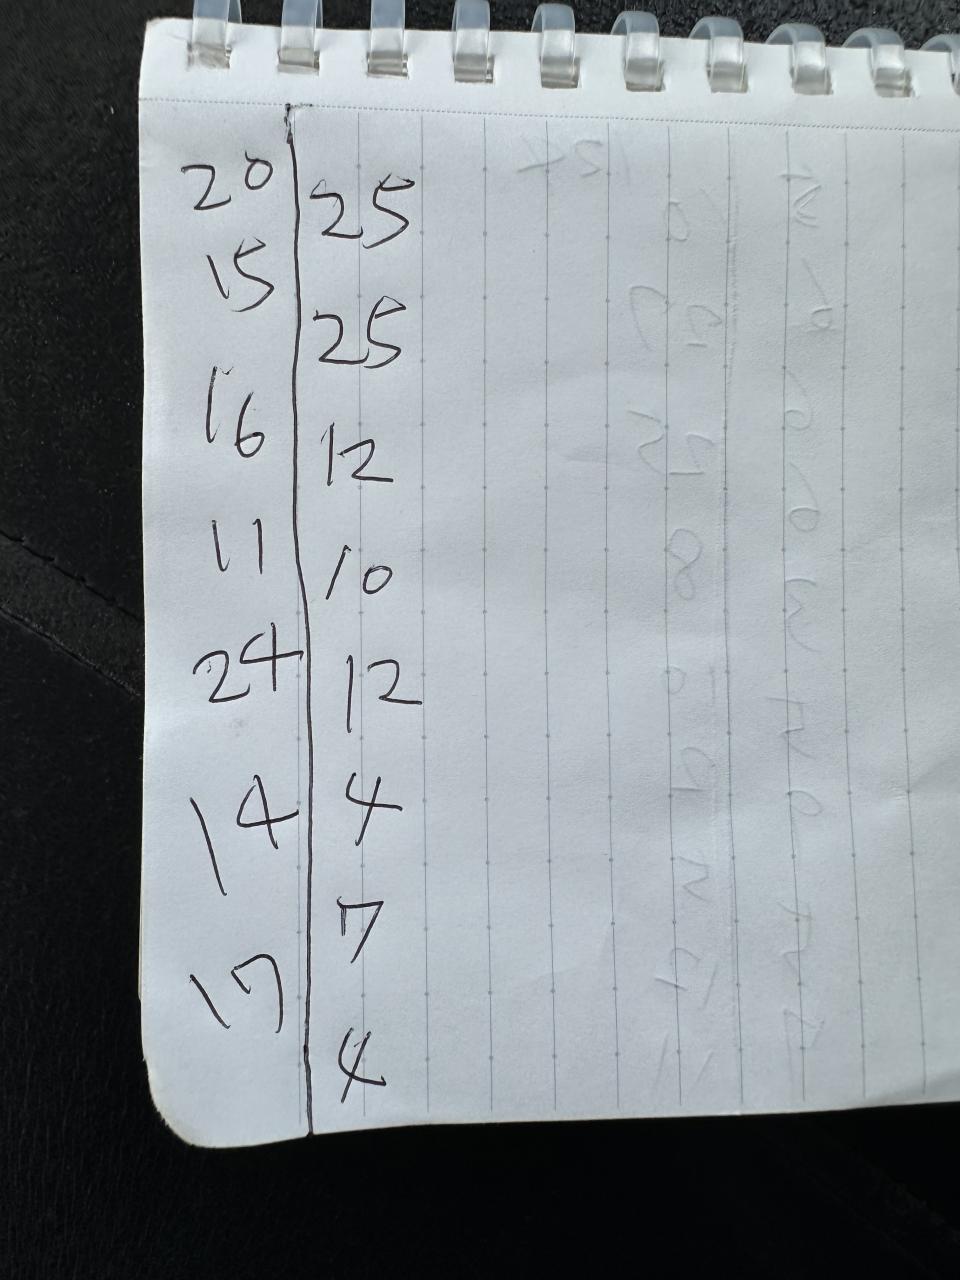 20
15
16
11
24
14
17
25
25
12
10
12
4
7
4